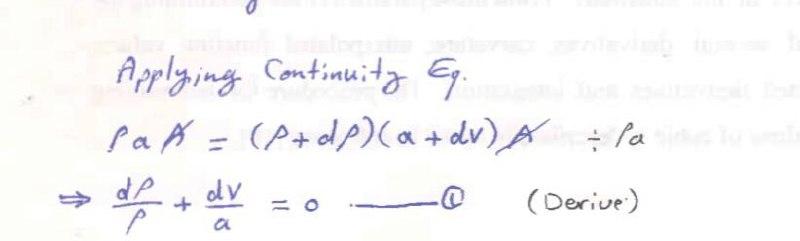 Applying Continuity Eq.
ρ a A = (ρ + dρ)(a + dv) A ÷ ρa
⇒ dρ/ρ + dv/a = 0 ——— ① (Derive)